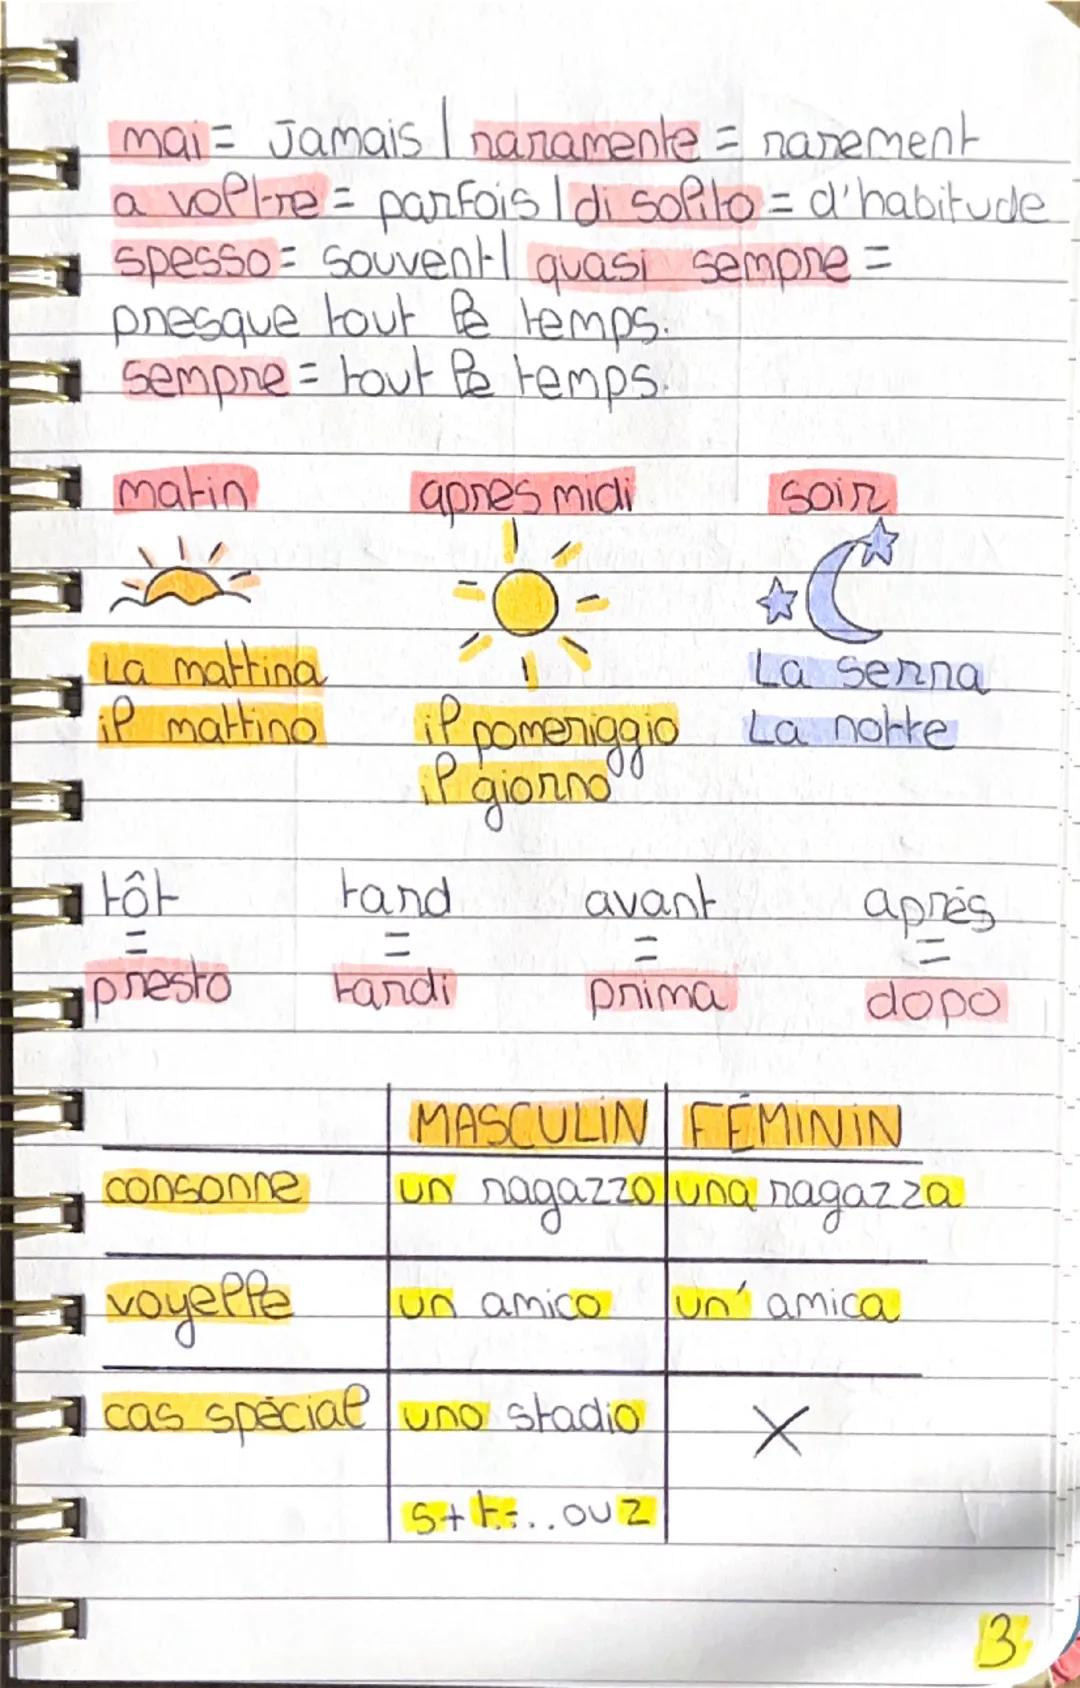 mai = Jamais | raramente = rarement
a voltre = parfois | di solito = d'habitude
spesso = souvent | quasi sempre =
presque tout le temps.
sempre = tout le temps.
matin apres midi soir
La mattina La serra
il mattino il pomeriggio La notte
il giorno
tôt tard avant après
= = = =
presto tardi prima dopo
MASCULIN FÉMININ
consonne un ragazzo una ragazza
voyelle un amico un' amica
cas spécial uno stadio X
s+t=...ou z
3